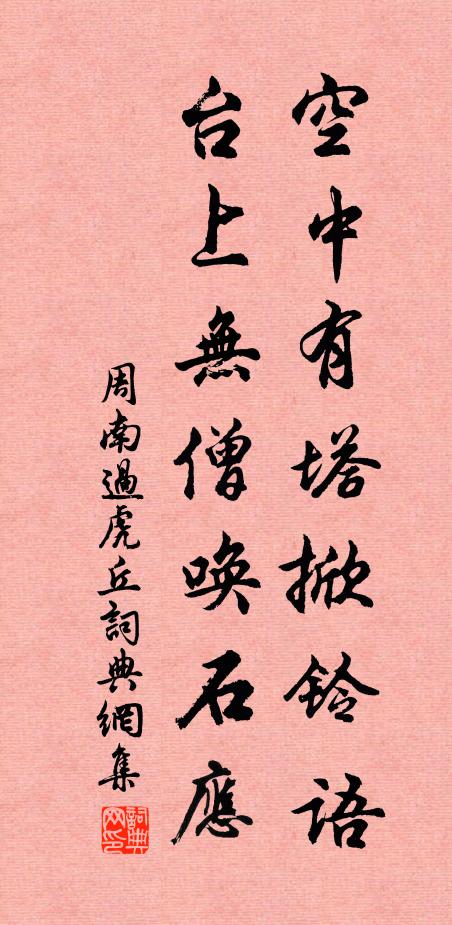 空中有塔掀鈴語
台上無僧喚石應
周南過虎丘詞典網集
詞典网印